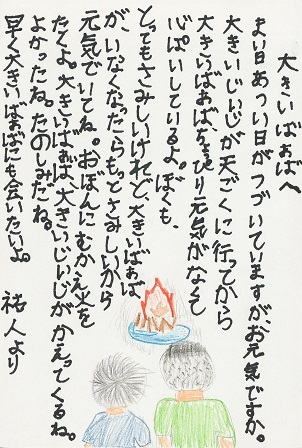 大きいばぁばへ
まい日あつい日がつづいていますが、お元気ですか。
大きいじぃじが天ごくに行ってから
大きいばぁば、ちょぴり元気がなくて
心ぱいしているよ。ぼくも、
とってもさみしいけれど、大きいばぁば
がいなくなったらもっとさみしいから
元気でいてね。おぼんにむかえ火を
たくよ。大きいばぁば、大きいじぃじがかえってくるね。
よかったね。たのしみだね。
早く大きいばぁばにも会いたいよ。
祐人より